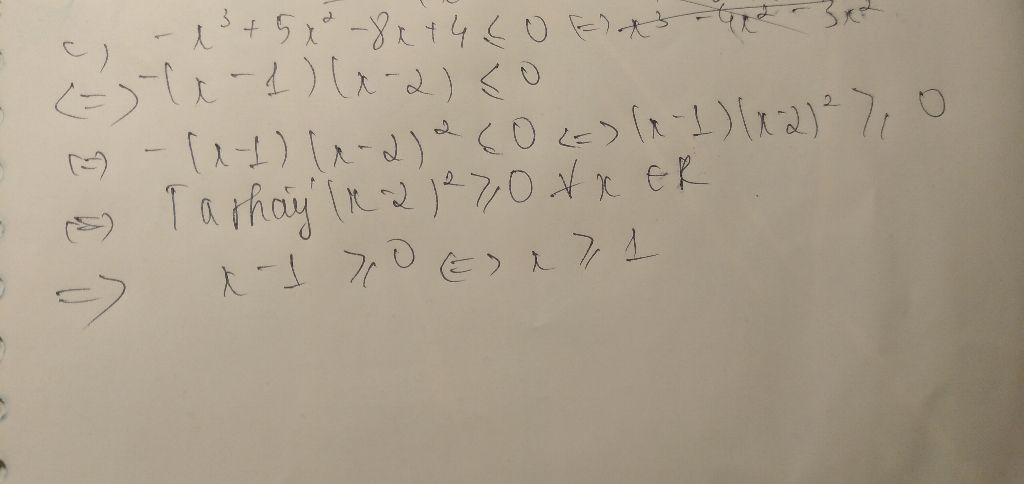 c) -x³ + 5x² - 8x + 4 ≤ 0 (=) -x³ - 4x² - 3x²
<=> -(x - 1)(x - 2) ≤ 0
(=) -(x-1)(x-2)² ≤ 0 <=> (x-1)(x-2)² ≥ 0
(=) Ta thấy (x-2)² ≥ 0 ∀x ∈ R
=> x - 1 ≥ 0 <=> x ≥ 1